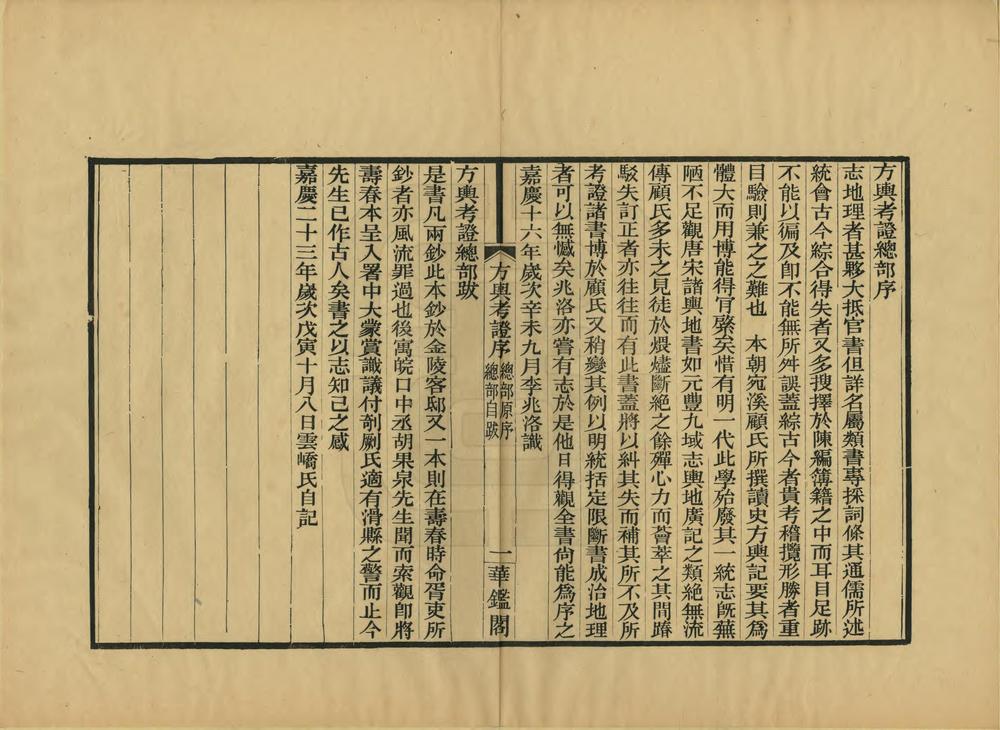 方輿考證總部序
志地理者甚夥大抵官書但詳名屬類書專採詞條其通儒所述
統會古今綜合得失者又多搜擇於陳編簿籍之中而耳目足跡
不能以徧及卽不能無所舛誤蓋綜古今者貴考稽攬形勝者重
目驗則兼之之難也　本朝宛溪顧氏所撰讀史方輿記要其爲
體大而用博能得肎綮矣惜有明一代此學殆廢其一統志旣蕪
陋不足觀唐宋諸輿地書如元豐九域志輿地廣記之類絕無流
傳顧氏多未之見徒於煨燼斷絕之餘殫心力而薈萃之其間踳
駁失訂正者亦往往而有此書蓋將以糾其失而補其所不及所
考證諸書博於顧氏又稍變其例以明統括定限斷書成治地理
者可以無憾矣兆洛亦嘗有志於是他日得觀全書尙能爲序之
嘉慶十六年歲次辛未九月李兆洛識
方輿考證序
總部原序
總部自跋
一
華鑑閣
方輿考證總部跋
是書凡兩鈔此本鈔於金陵客邸又一本則在壽春時命胥吏所
鈔者亦風流罪過也後寓皖口中丞胡果泉先生聞而索觀卽將
壽春本呈入署中大蒙賞識議付剞劂氏適有滑縣之警而止今
先生已作古人矣書之以志知己之感
嘉慶二十三年歲次戊寅十月八日雲嶠氏自記